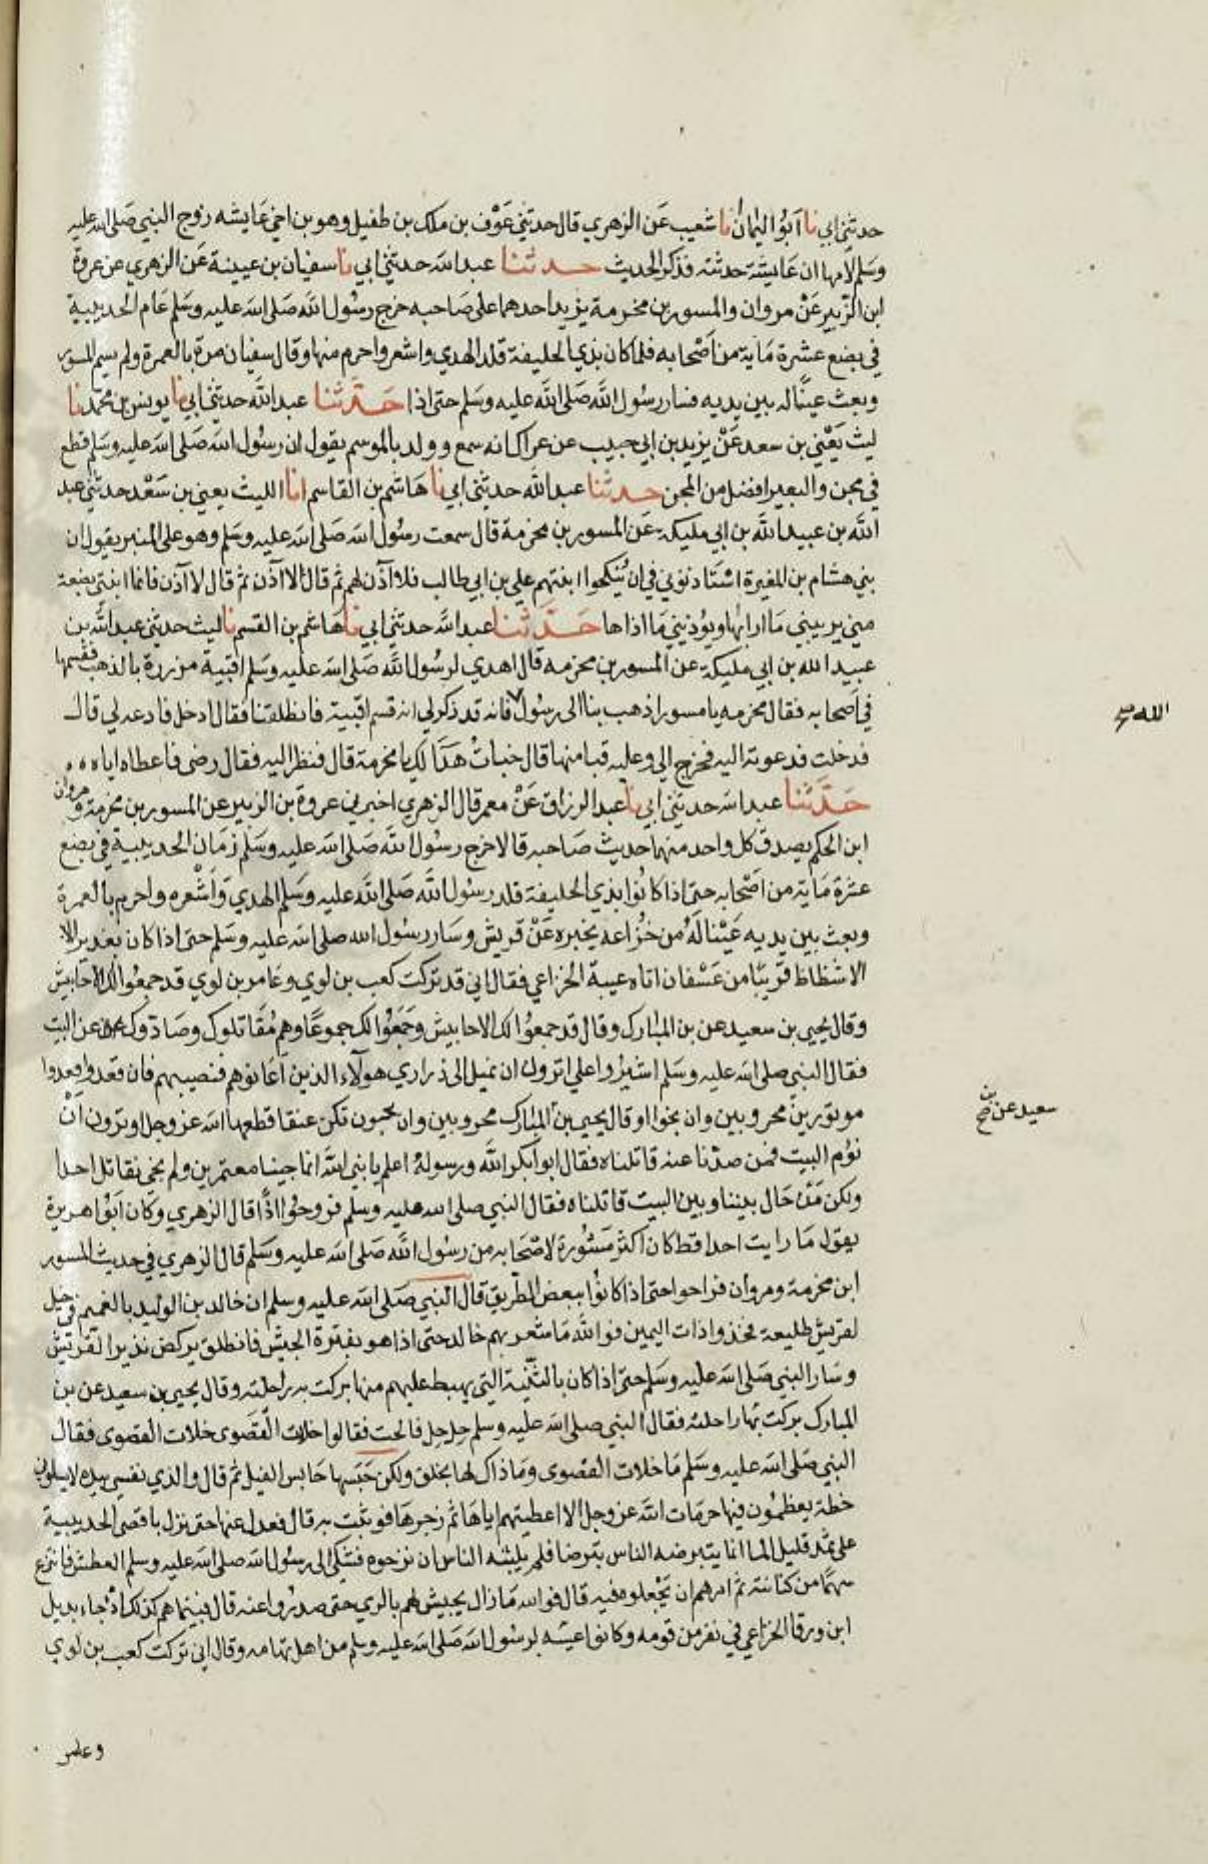 حدثني ابي نا أبو اليمان نا شعيب عن الزهري قال حدثني عوف بن ملك بن طفيل وهو بن اخي عايشه زوج النبي صلى الله عليه
وسلم لامها ان عايشة حدثته فذكر الحديث حدثنا عبد الله حدثني ابي نا سفيان بن عيينة عن الزهري عن عروة
ابن الزبير عن مروان والمسور بن مخرمة يزيد احدهما على صاحبه خرج رسول الله صلى الله عليه وسلم عام الحديبية
في بضع عشرة ماية من أصحابه فلما كان بذي الحليفة قلد الهدي واشعر واحرم منها وقال سفيان مرة بالعمرة ولم يسم المسور
وبعث عينا له بين يديه فسار رسول الله صلى الله عليه وسلم حتى اذا حدثنا عبد الله حدثني ابي نا يونس بن محمد نا
ليث يعني بن سعد عن يزيد بن ابي حبيب عن عراك انه سمع وولد بالموسم يقول ان رسول الله صلى الله عليه وسلم قطع
في مجن والبعير افضل من المجن حدثنا عبد الله حدثني ابي نا هاشم بن القاسم انا الليث يعني بن سعد حدثني عبد
الله بن عبيد الله بن ابي مليكة عن المسور بن مخرمة قال سمعت رسول الله صلى الله عليه وسلم وهو على المنبر يقول ان
بني هشام بن المغيرة استاذنوني في ان ينكحوا ابنتهم علي بن ابي طالب فلا آذن لهم ثم قال لا آذن ثم قال لا آذن فانما ابنتي بضعة
مني يريبني ما ارابها ويؤذيني ما اذاها حدثنا عبد الله حدثني ابي نا هاشم بن القسم نا ليث حدثني عبد الله بن
عبيد الله بن ابي مليكة عن المسور بن مخرمه قال اهدي لرسول الله صلى الله عليه وسلم اقبية مزررة بالذهب فقسمها
في أصحابه فقال مخرمه يا مسور اذهب بنا الى رسول فانه قد ذكر لي انه قسم اقبية فانطلقنا فقال ادخل فادعه لي قال
الله صح
فدخلت فدعوته اليه فخرج الي وعليه قبا منها قال خبات هذا لك يا مخرمة قال فنظر اليه فقال رضى فاعطاه اياه
حدثنا عبد الله حدثني ابي نا عبد الرزاق عن معمر قال الزهري اخبرني عروة بن الزبير عن المسور بن مخرمة ومروان
ابن الحكم يصدق كل واحد منهما حديث صاحبه قالا خرج رسول الله صلى الله عليه وسلم زمان الحديبية في بضع
عشرة ماية من اصحابه حتى اذا كانوا بذي الحليفة قلد رسول الله صلى الله عليه وسلم الهدي وأشعره واحرم بالعمرة
وبعث بين يديه عينا له من خزاعه يخبره عن قريش وسار رسول الله صلى الله عليه وسلم حتى اذا كان بغدير الا
الاشظاظ قريبا من عسفان اتاه عيبة الخزاعي فقال اني قد تركت كعب بن لوي وعامر بن لوي قد جمعوا لك الاحابيش
وقال يحيى بن سعيد عن بن المبارك وقال قد جمعوا لك الاحابيش وجمعوا لك جموعا وهم مقاتلوك وصادوك عن البيت
فقال النبي صلى الله عليه وسلم اشيروا علي اترون ان نميل الى ذراري هولآء الذين اعانوهم فنصيبهم فان قعدوا قعدوا
موتورين محروبين وان نجوا وقال يحيى بن المبارك محروبين وان يحبون تكن عنقا قطعها الله عز وجل او ترون أن
سعيد عن بن صح
نؤم البيت فمن صدنا عنه قاتلناه فقال ابو ابكر الله ورسوله اعلم يا نبي الله انما جينا معتمرين ولم نجي نقاتل احدا
ولكن من حال بيننا وبين البيت قاتلناه فقال النبي صلى الله عليه وسلم فروحوا اذا قال الزهري وكان ابو اهريرة
يقول ما رايت احدا قط كان اكثر مشورة لاصحابه من رسول الله صلى الله عليه وسلم قال الزهري في حديث المسور
ابن مخرمة ومروان فراحوا حتى اذا كانوا ببعض الطريق قال النبي صلى الله عليه وسلم ان خالد بن الوليد بالغميم في خيل
لقريش طليعة فخذوا ذات اليمين فوالله ما شعر بهم خالد حتى اذا هو بقترة الجيش فانطلق يركض نذيرا لقريش
وسار النبي صلى الله عليه وسلم حتى اذا كان بالثنية التي يهبط عليهم منها بركت به راحلته وقال يحيى بن سعيد عن بن
المبارك بركت بها راحلته فقال النبي صلى الله عليه وسلم حل حل فالحت فقالوا خلات القصوى خلات القصوى فقال
النبي صلى الله عليه وسلم ما خلات القصوى وما ذاك لها بخلق ولكن حبسها حابس الفيل ثم قال والذي نفسي بيده لا يسلوني
خطة يعظمون فيها حرمات الله عز وجل الا اعطيتهم اياها ثم زجرها فوثبت به قال فعدل عنها حتى نزل باقصى الحديبية
على ثمد قليل الما انما يتبرضه الناس تبرضا فلم يلبثه الناس ان نزحوه فشكي الى رسول الله صلى الله عليه وسلم العطش فانتزع
سهما من كنانته ثم امرهم ان يجعلوه فيه قال فوالله ما زال يجيش لهم بالري حتى صدروا عنه قال فبينما هم كذلك اذ جاء بديل
ابن ورقا الخزاعي في نفر من قومه وكانوا عيبه لرسول الله صلى الله عليه وسلم من اهل تهامه وقال اني تركت كعب بن لوي
وعامر